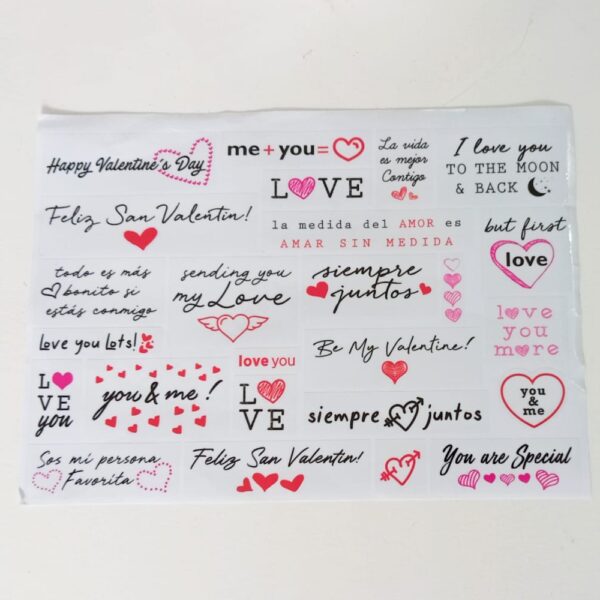 Happy Valentine's Day
me + you =
LOVE
La vida
es mejor
Contigo
I love you
TO THE MOON
& BACK
Feliz San Valentin!
la medida del AMOR es
AMAR SIN MEDIDA
but first
love
todo es más
bonito si
estás conmigo
sending you
my Love
siempre
juntos
love
you
more
Love you Lots!
Be My Valentine!
LO
VE
you
you & me !
love you
LO
VE
siempre juntos
you
& me
Sos mi persona
Favorita
Feliz San Valentin!
You are Special